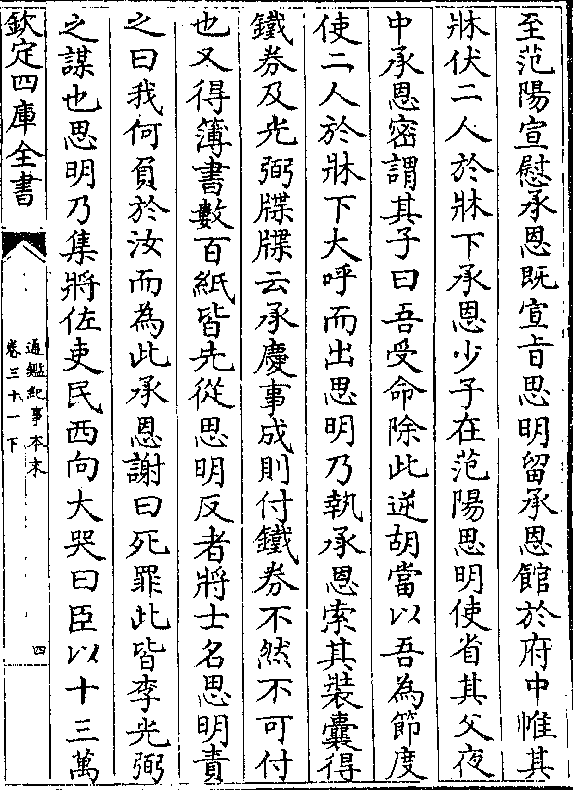 至范陽宣慰承恩既宣旨思明留承恩館於府中帷其
牀伏二人於牀下承恩少子在范陽思明使省其父夜
中承恩密謂其子曰吾受命除此逆胡當以吾為節度
使二人於牀下大呼而出思明乃執承恩索其裝囊得
鐵券及光弼牒牒云承慶事成則付鐵券不然不可付
也又得簿書數百紙皆先從思明反者將士名思明責
之曰我何負於汝而為此承恩謝曰死罪此皆李光弼
之謀也思明乃集將佐吏民西向大哭曰臣以十三萬
欽定四庫全書
通鑑紀事本末
卷三十一下
四